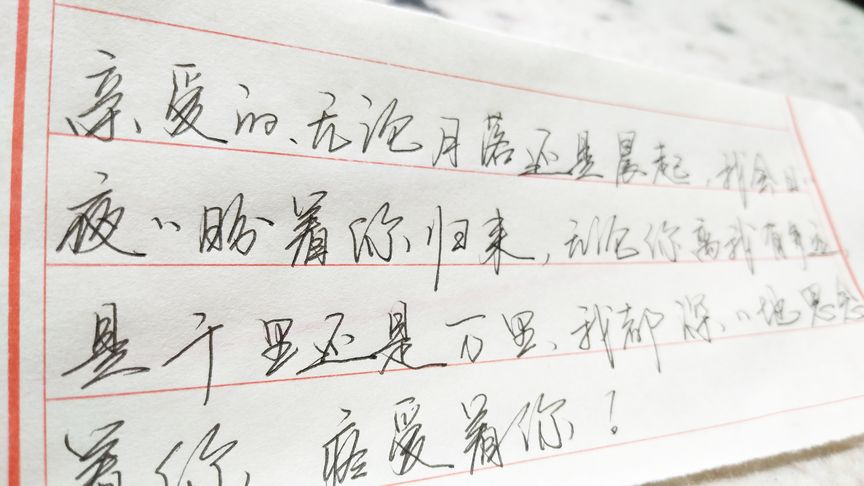 亲爱的、无论月落还是晨起，我会日
夜〃盼着你归来，无论你离我有多远，
是千里还是万里、我都深〃地思念
着你，疼爱着你！